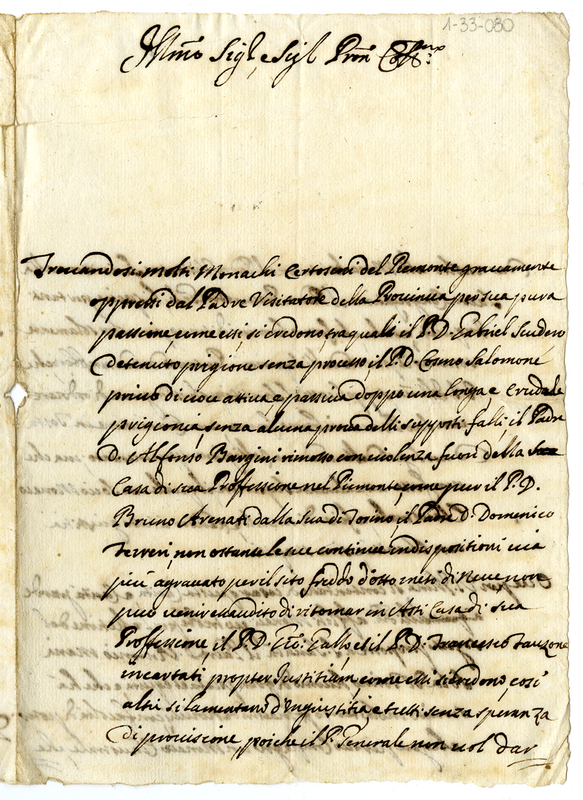 1-33-080
Illmo Sigr, e Sigr Pron Colmo
Trovandosi molti Monachi Certosini del Piemonte gravamente
oppressi dal Padre Visitatore della Provincia per sua pura
passione, come essi si credono tra quali il P. D. Gabriel Scudero
detenuto prigione senza processo il P. D. Cosmo Salomone
privo di voce attiva e passiva doppo una longa e crudele
prigionia, senza alcuna prova delli supposti falli, il Padre
D. Alfonso Bargini rimosso con violenza fuori della sua
Casa di sua Professione nel Piemonte, come pur il P. D.
Bruno Arenati dalla sua di Torino, il Padre D. Domenico
Terreri, non ostante le sue continue indispositioni via
più agravato per il sito freddo d'otto mesi di neve non
può venir essaudito di ritornar in Asti Casa di sua
Proffessione il P. D. Gio: Gallo et il P. D. Francesco
incartati propter Justitiam, come essi si credono, così
altri si lamentano d'ingiustitia, e tutti senza speranza
di provisione, poiche il P. Generale non vol dar